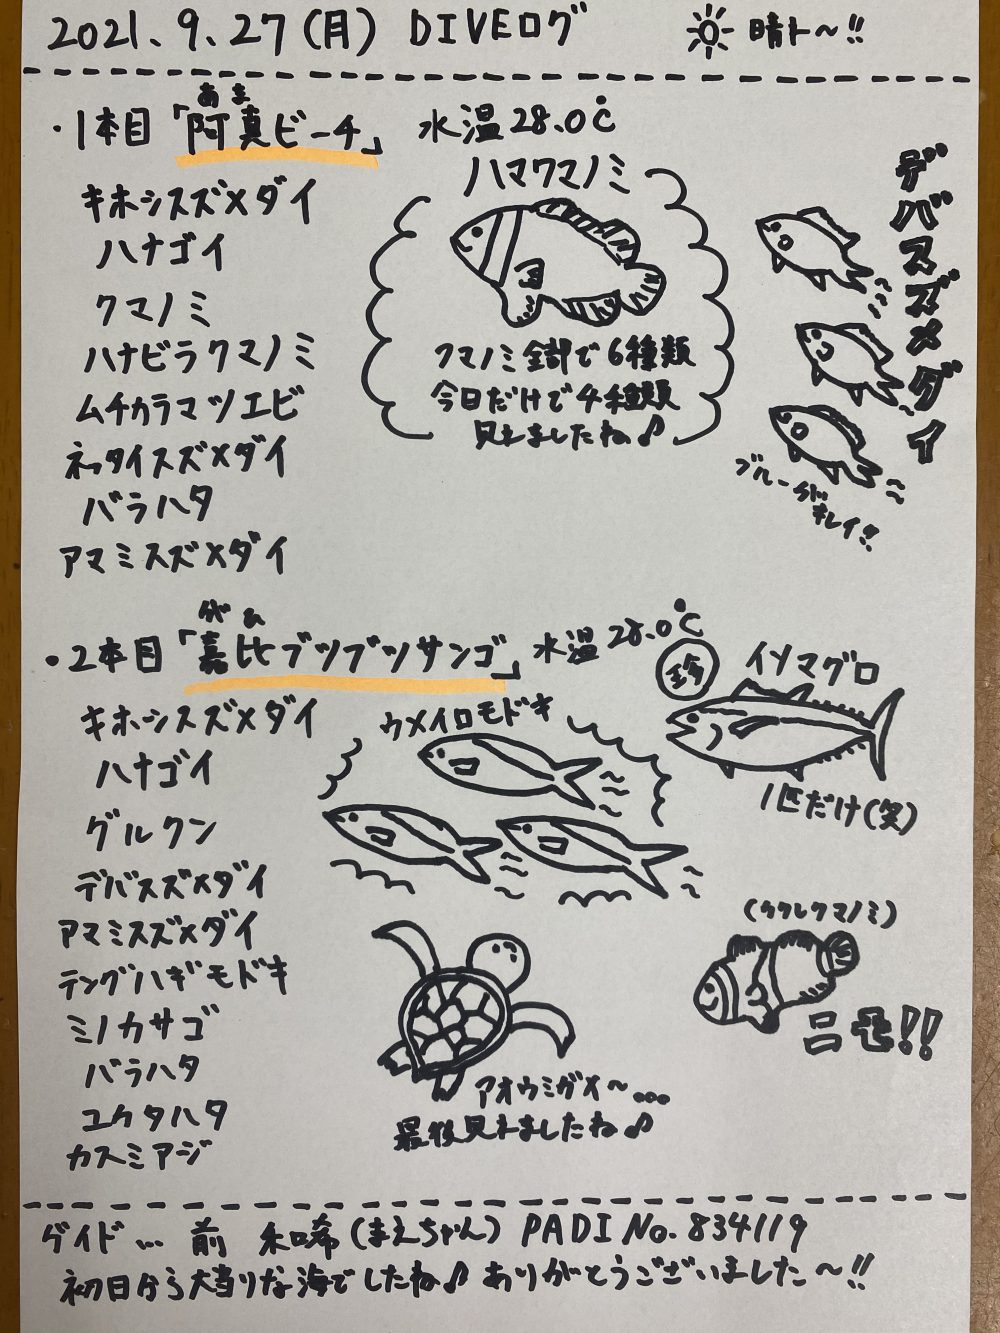 2021.9.27(月) DIVEログ
晴ト～!!
あま
・1本目「阿真ビーチ」 水温28.0℃
キホシスズメダイ
ハナゴイ
クマノミ
ハナビラクマノミ
ムチカラマツエビ
ネッタイスズメダイ
バラハタ
アマミスズメダイ
ハマクマノミ
クマノミ全部で6種類
今日だけで4種類
見れましたね♪
デバスズメダイ
ブルーが
キレイ!!
がひ
・2本目「嘉比ブツブツサンゴ」 水温28.0℃
キホシスズメダイ
ハナゴイ
グルクン
デバスズメダイ
アマミスズメダイ
テングハギモドキ
ミノカサゴ
バラハタ
ユカタハタ
カスミアジ
ウメイロモドキ
珍
イソマグロ
1匹だけ(笑)
(カクレクマノミ)
ニモ!!
アオウミガメ～…
最後見れましたね♪
ガイド… 前 (まえちゃん) PADI No.834119
初日から大当りな海でしたね♪ ありがとうございました～!!